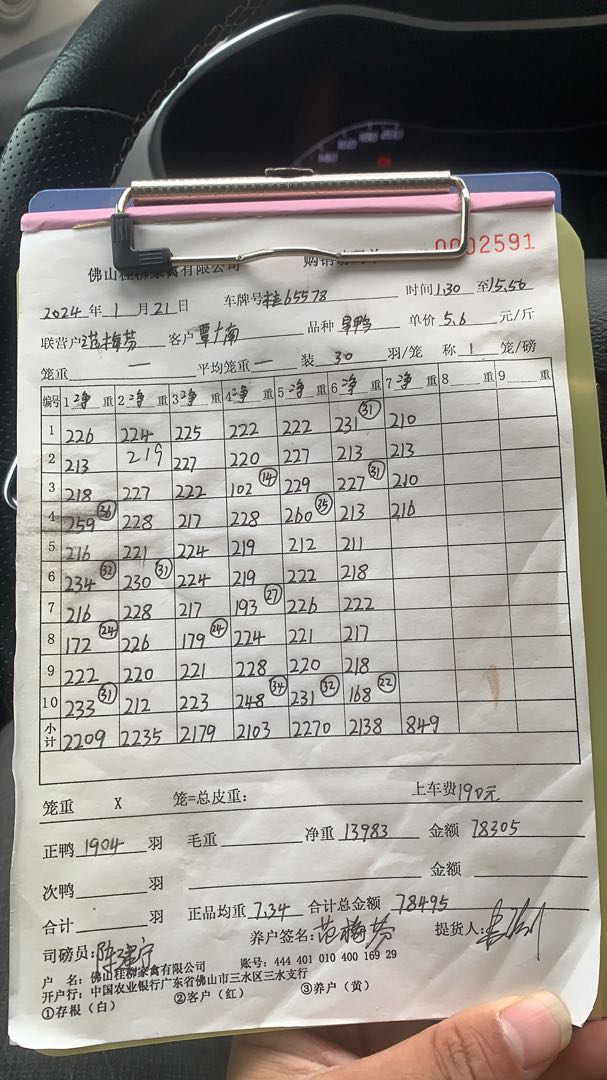 佛山桂柳家禽有限公司 0002591
2024 年 1 月 21 日 车牌号 桂65578 时间 1.30 至 15.50
联营户 范梅芬 客户 覃广南 品种 旱鸭 单价 5.6 元/斤
笼重 — 平均笼重 — 装 30 羽/笼 称 1 笼/磅
编号 1 净 重 2 净 重 3 净 重 4 净 重 5 净 重 6 净 重 7 净 重 8 重 9 重
1 226 224 225 222 222 231 31 210
2 213 219 227 220 227 213 213
3 218 227 222 102 14 229 227 31 210
4 259 36 228 217 228 260 35 213 216
5 216 221 224 219 212 211
6 234 32 230 31 224 219 222 218
7 216 228 217 193 27 226 222
8 172 24 226 179 24 224 221 217
9 222 220 221 228 220 218
10 233 31 212 223 248 34 231 32 168 22
小计 2209 2235 2179 2103 2270 2138 849
笼重 X 笼=总皮重: 上车费 190元
正鸭 1904 羽 毛重 净重 13983 金额 78305
次鸭 羽 金额
合计 羽 正品均重 7.34 合计总金额 78495
司磅员: 养户签名: 范梅芬 提货人:
户 名: 佛山桂柳家禽有限公司 账号: 444 401 010 400 169 29
开户行: 中国农业银行广东省佛山市三水区三水支行
①存根(白) ②客户(红) ③养户(黄)